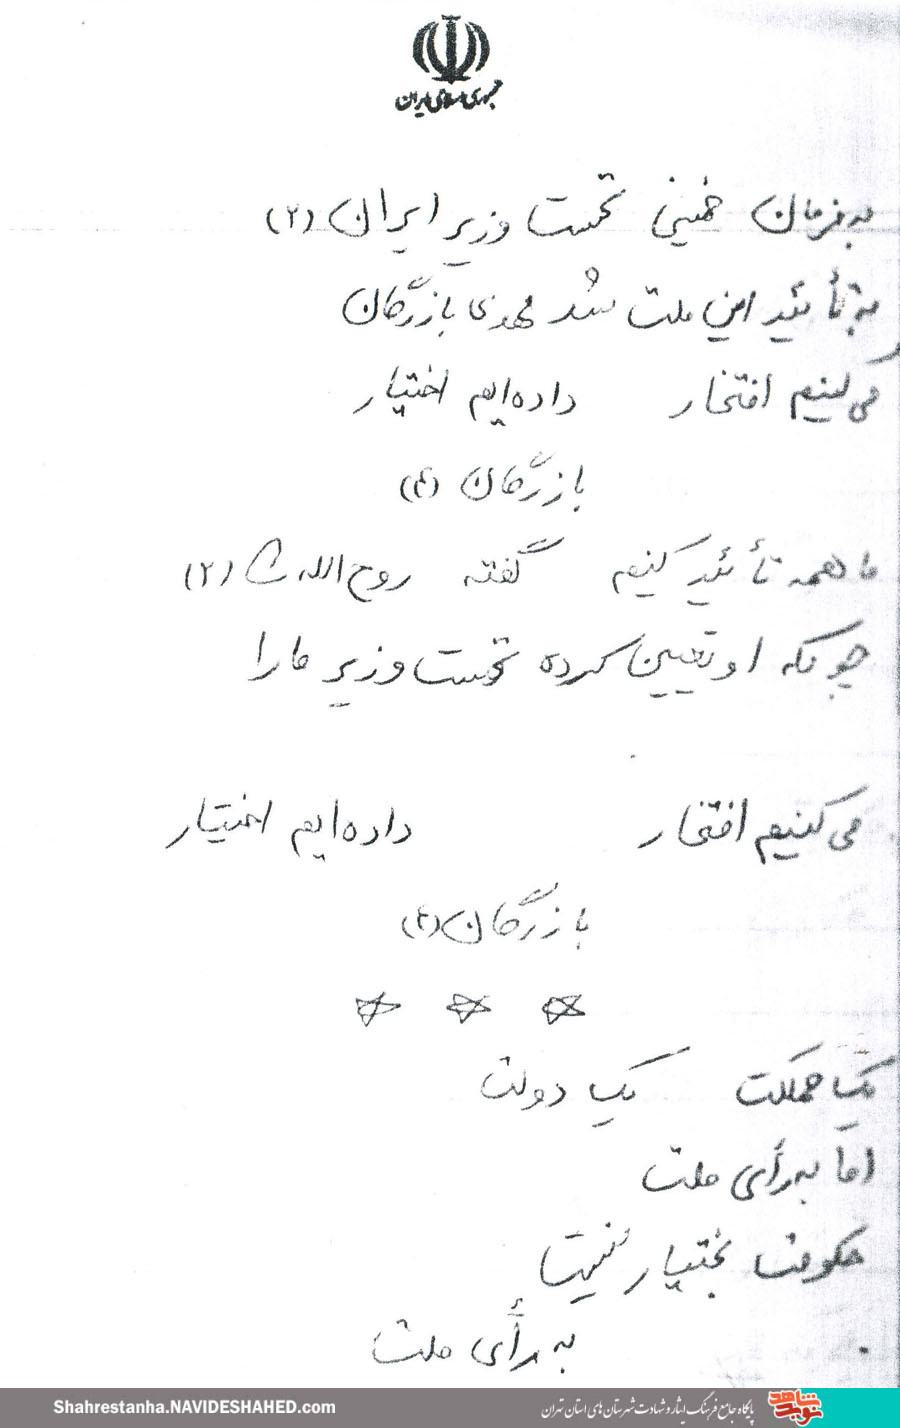 جمهوری اسلامی ایران
به فرمان خمینی نخست وزیر ایران (۲)
به تأئید این ملت شد مهدی بازرگان
می کنیم افتخار داده ایم اختیار
بازرگان (۴)
ما همه تأئید کنیم گفته روح الله را (۲)
چونکه او تعیین کرده نخست وزیر ما را
می کنیم افتخار داده ایم اختیار
بازرگان (۴)
یک مملکت یک دولت
اما به رأی ملت
حکومت بختیار نیست
به رأی ملت
Shahrestanha.NAVIDESHAHED.com
پایگاه جامع فرهنگ ایثار و شهادت شهرستان های استان تهران
نوید شاهد